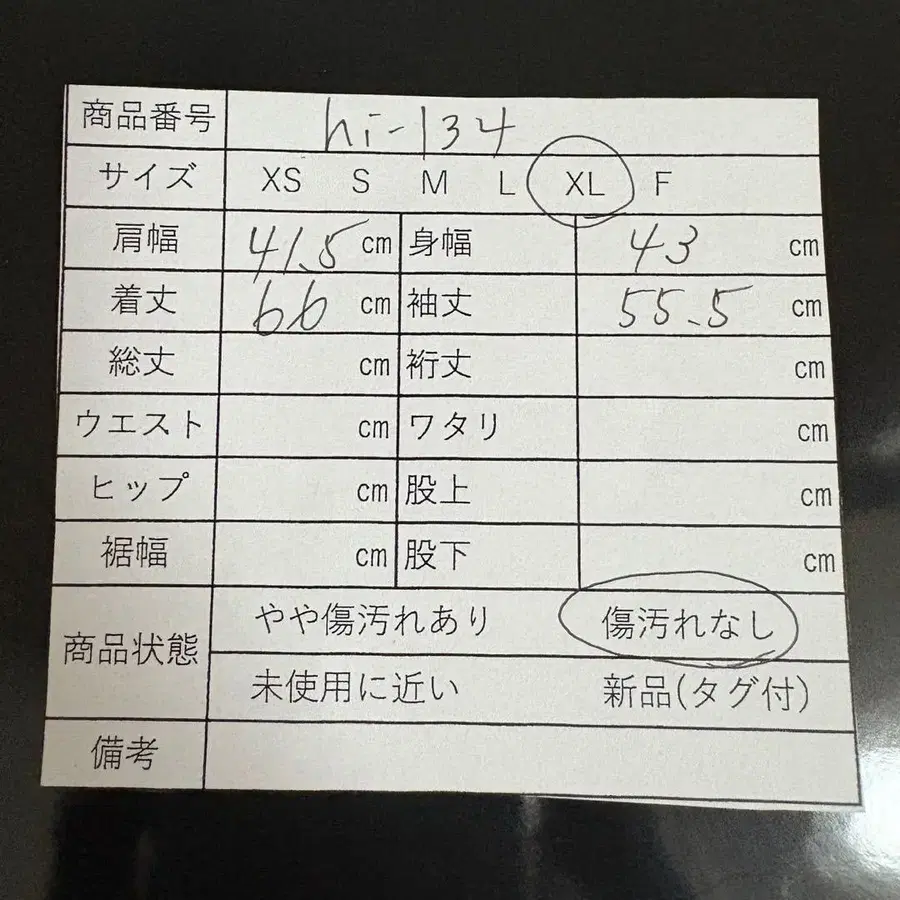 商品番号 hi-134
サイズ XS S M L XL F
肩幅 41.5 cm 身幅 43 cm
着丈 66 cm 袖丈 55.5 cm
総丈 cm 裄丈 cm
ウエスト cm ワタリ cm
ヒップ cm 股上 cm
裾幅 cm 股下 cm
商品状態 やや傷汚れあり 傷汚れなし
未使用に近い 新品(タグ付)
備考